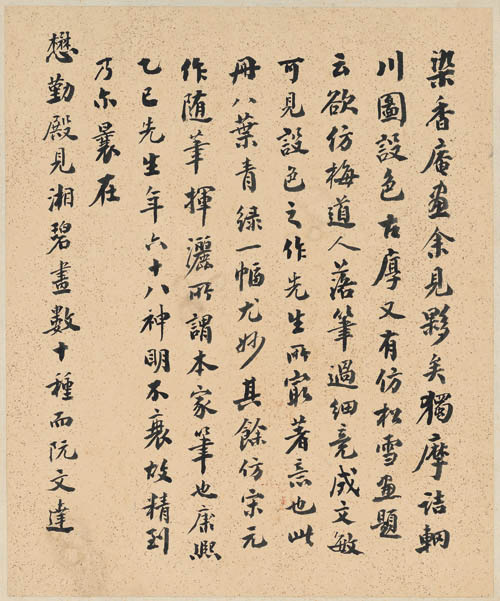 染香庵畫余見夥矣獨摩詰輞
川圖設色古厚又有仿松雪畫題
云欲仿梅道人落筆過細竟成文敏
可見設色之作先生所最著意也此
冊八葉青綠一幅尤妙其餘仿宋元
作随筆揮灑所謂本家筆也康熙
乙巳先生年六十八神明不衰故精到
乃尔曩在
懋勤殿見湘碧畫數十種而阮文達